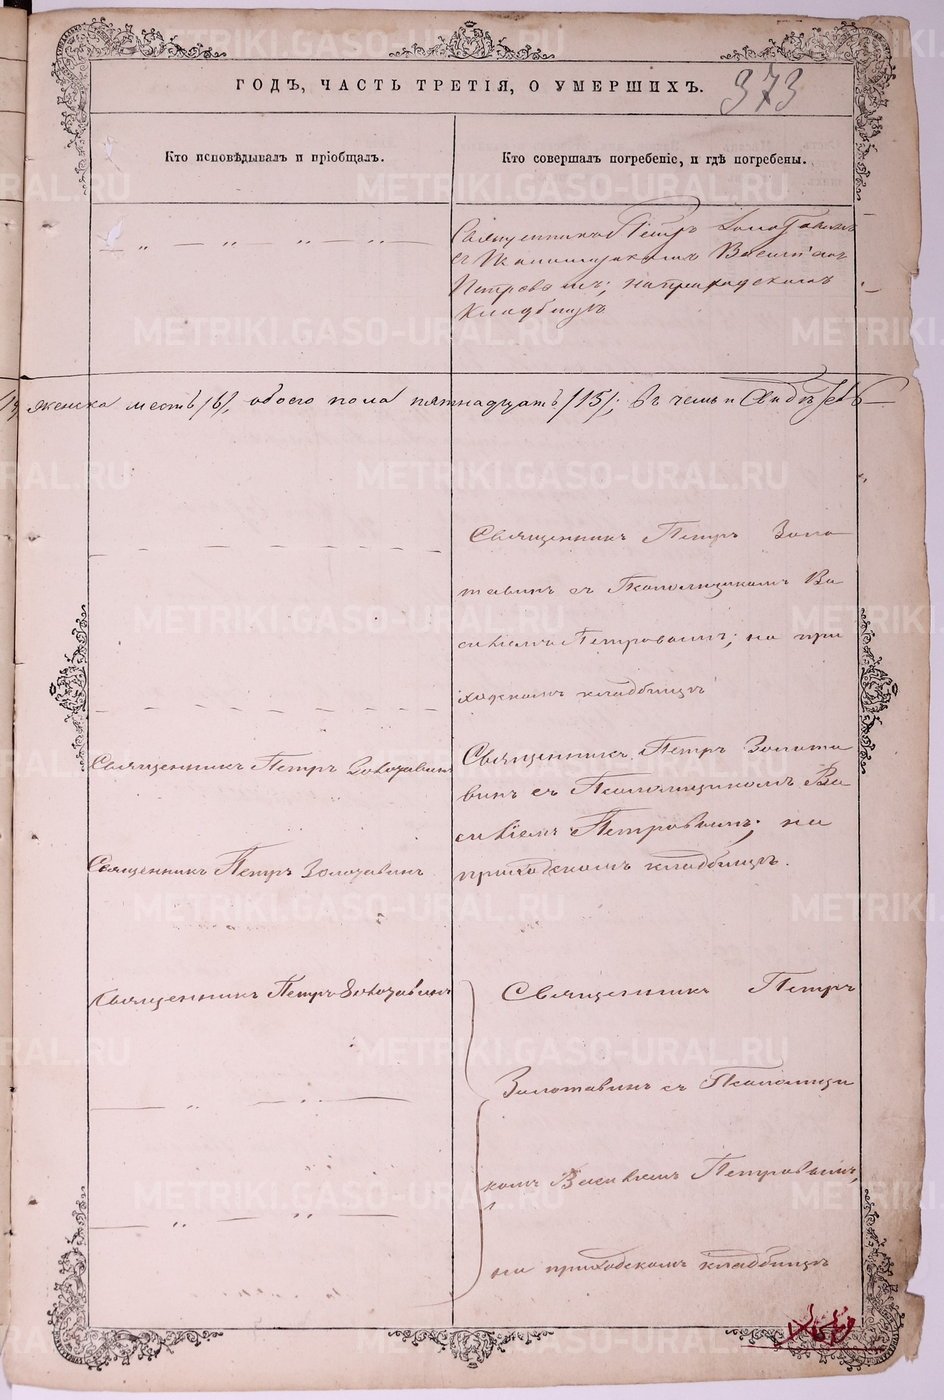 ГОДЪ, ЧАСТЬ ТРЕТІЯ, О УМЕРШИХЪ.
373
Кто исповѣдывалъ и пріобщалъ.
Кто совершалъ погребеніе, и гдѣ погребены.
Священникъ Петръ Золотавинъ
съ Псаломщикомъ Василіемъ
Петровымъ; на приходскомъ
кладбищѣ
женска шесть /6/, обоего пола пятнадцать /15/; въ чемъ и
Священникъ Петръ Золо
тавинъ съ Псаломщикомъ Ва
силіемъ Петровымъ; на при
ходскомъ кладбищѣ
Священникъ Петръ Золотавинъ
Священникъ Петръ Золота
винъ съ Псаломщикомъ Ва
силіемъ Петровымъ; на
приходскомъ кладбищѣ.
Священникъ Петръ Золотавинъ
Священникъ Петръ Золотавинъ
Священникъ Петръ
Золотавинъ съ Псаломщи
комъ Василіемъ Петровымъ,
на приходскомъ кладбищѣ
METRIKI.GASO-URAL.RU